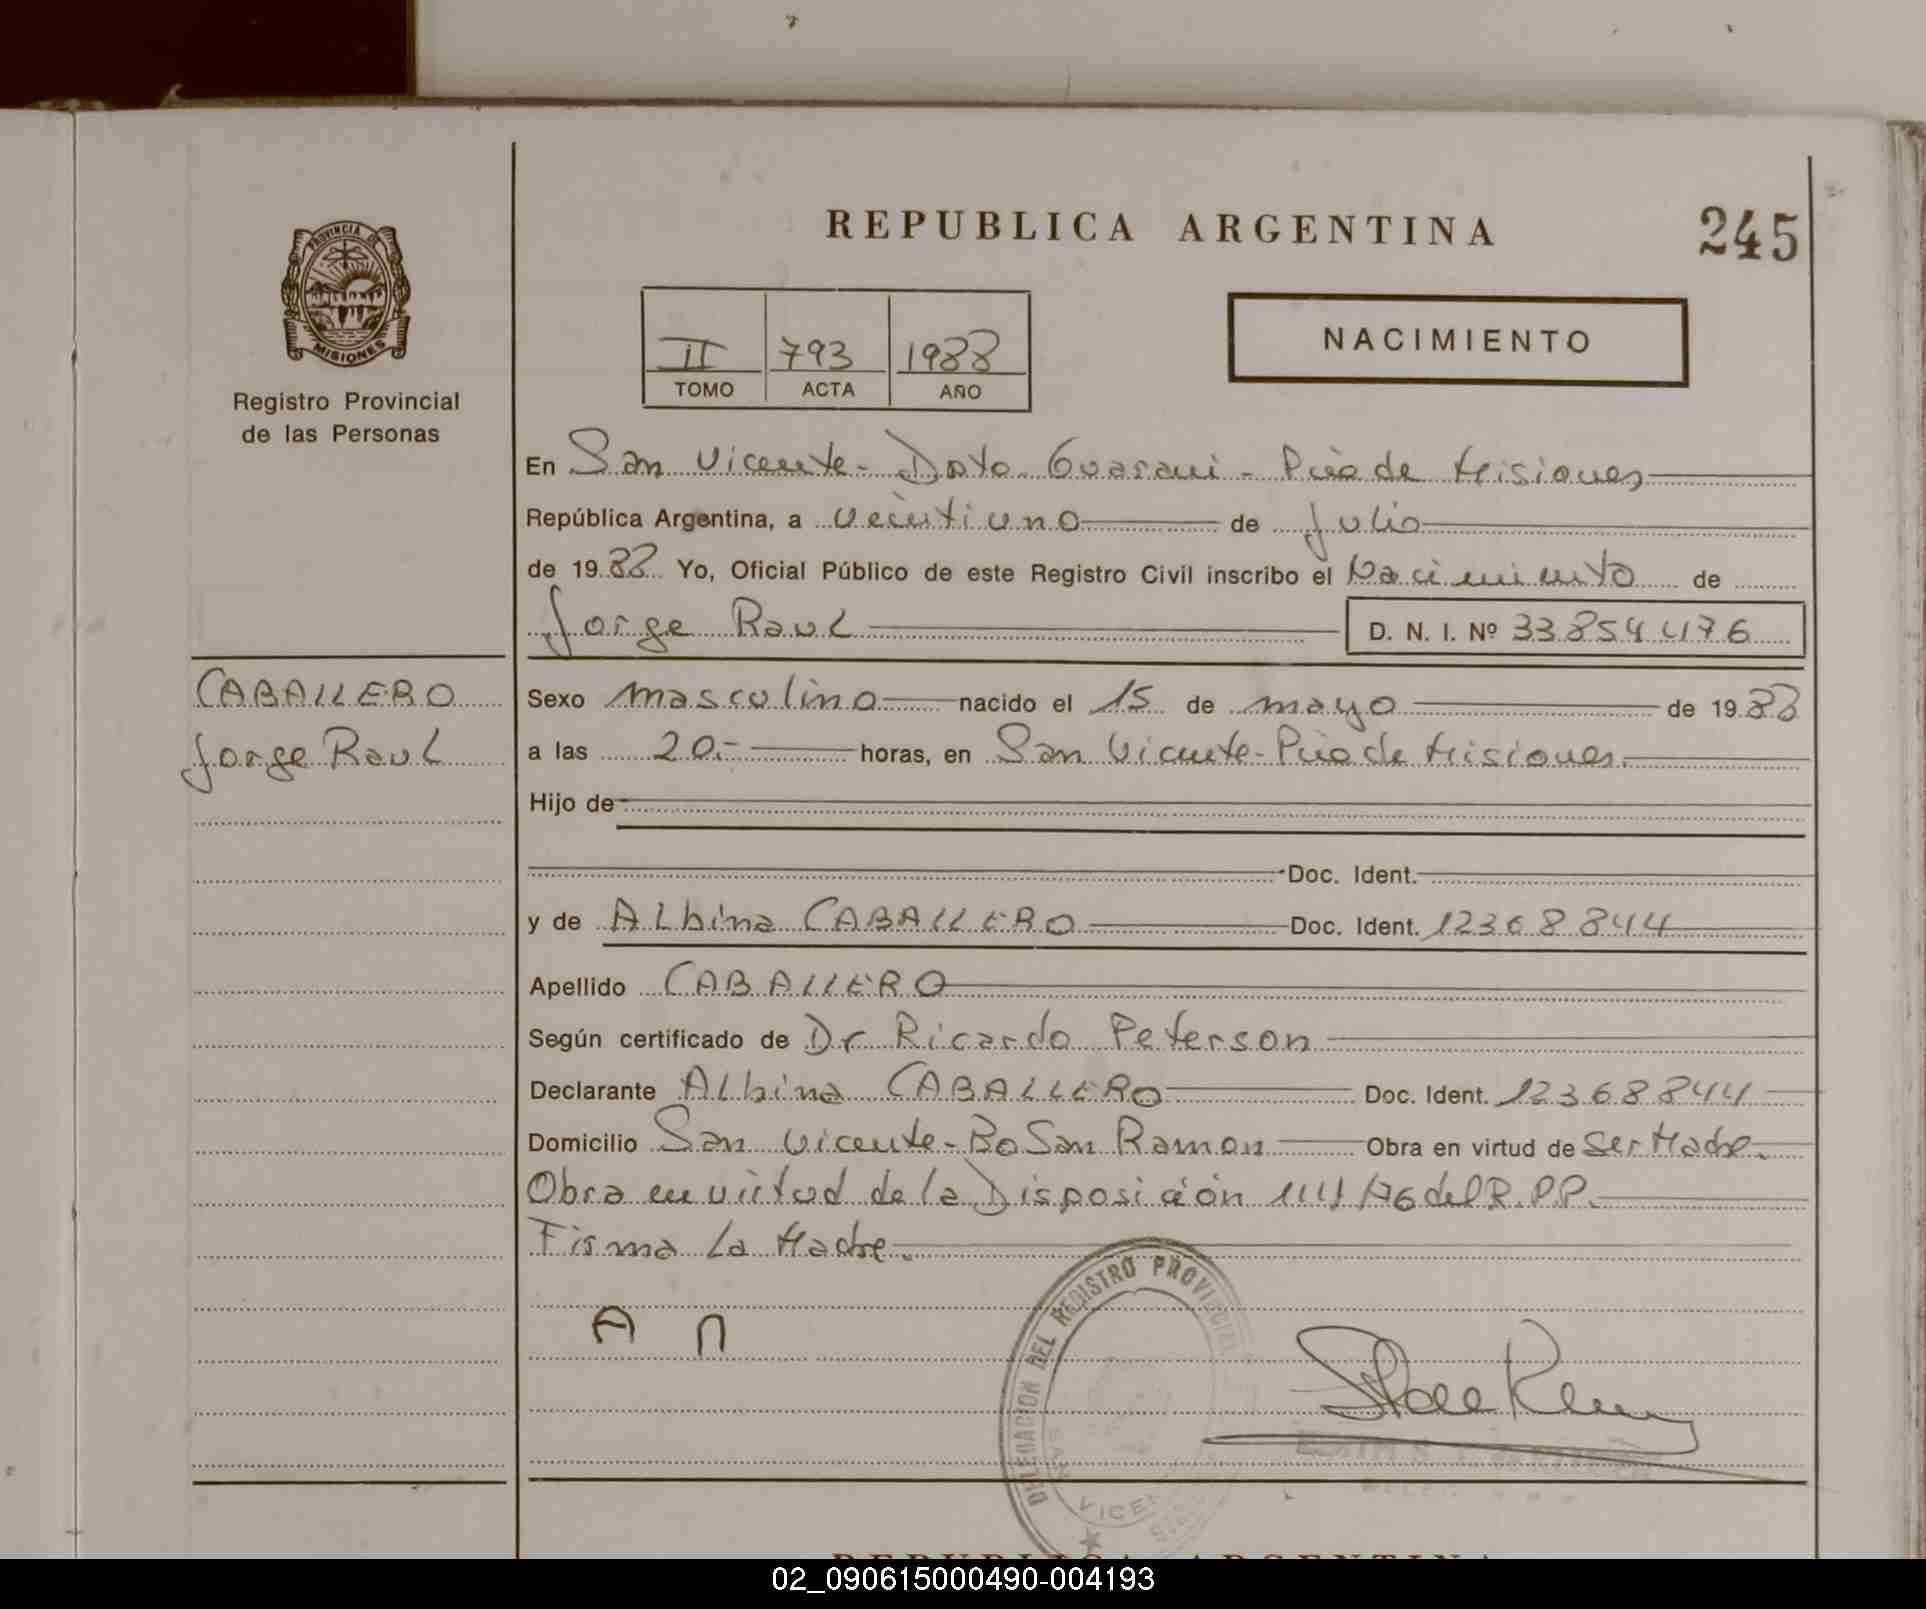 REPUBLICA ARGENTINA
245
PROVINCIA DE
MISIONES
Registro Provincial
de las Personas
II 793 1988
TOMO ACTA AÑO
NACIMIENTO
En San Vicente - Dpto. Guarani - Pcia de Misiones
República Argentina, a veintiuno de Julio
de 1988 Yo, Oficial Público de este Registro Civil inscribo el Nacimiento de
Jorge Raul D. N. I. Nº 33854476
CABALLERO
Jorge Raul
Sexo masculino nacido el 15 de mayo de 1988
a las 20.- horas, en San Vicente - Pcia de Misiones.
Hijo de
Doc. Ident.
y de Albina CABALLERO Doc. Ident. 12368844
Apellido CABALLERO
Según certificado de Dr Ricardo Peterson
Declarante Albina CABALLERO Doc. Ident. 12368844
Domicilio San Vicente - Bo San Ramon Obra en virtud de ser Madre.
Obra en virtud de la Disposición 114/76 del R.P.P.
Firma La Madre.
A
DELEGACION DEL REGISTRO PROVINCIAL
SAN VICENTE
REPUBLICA ARGENTINA
02_090615000490-004193